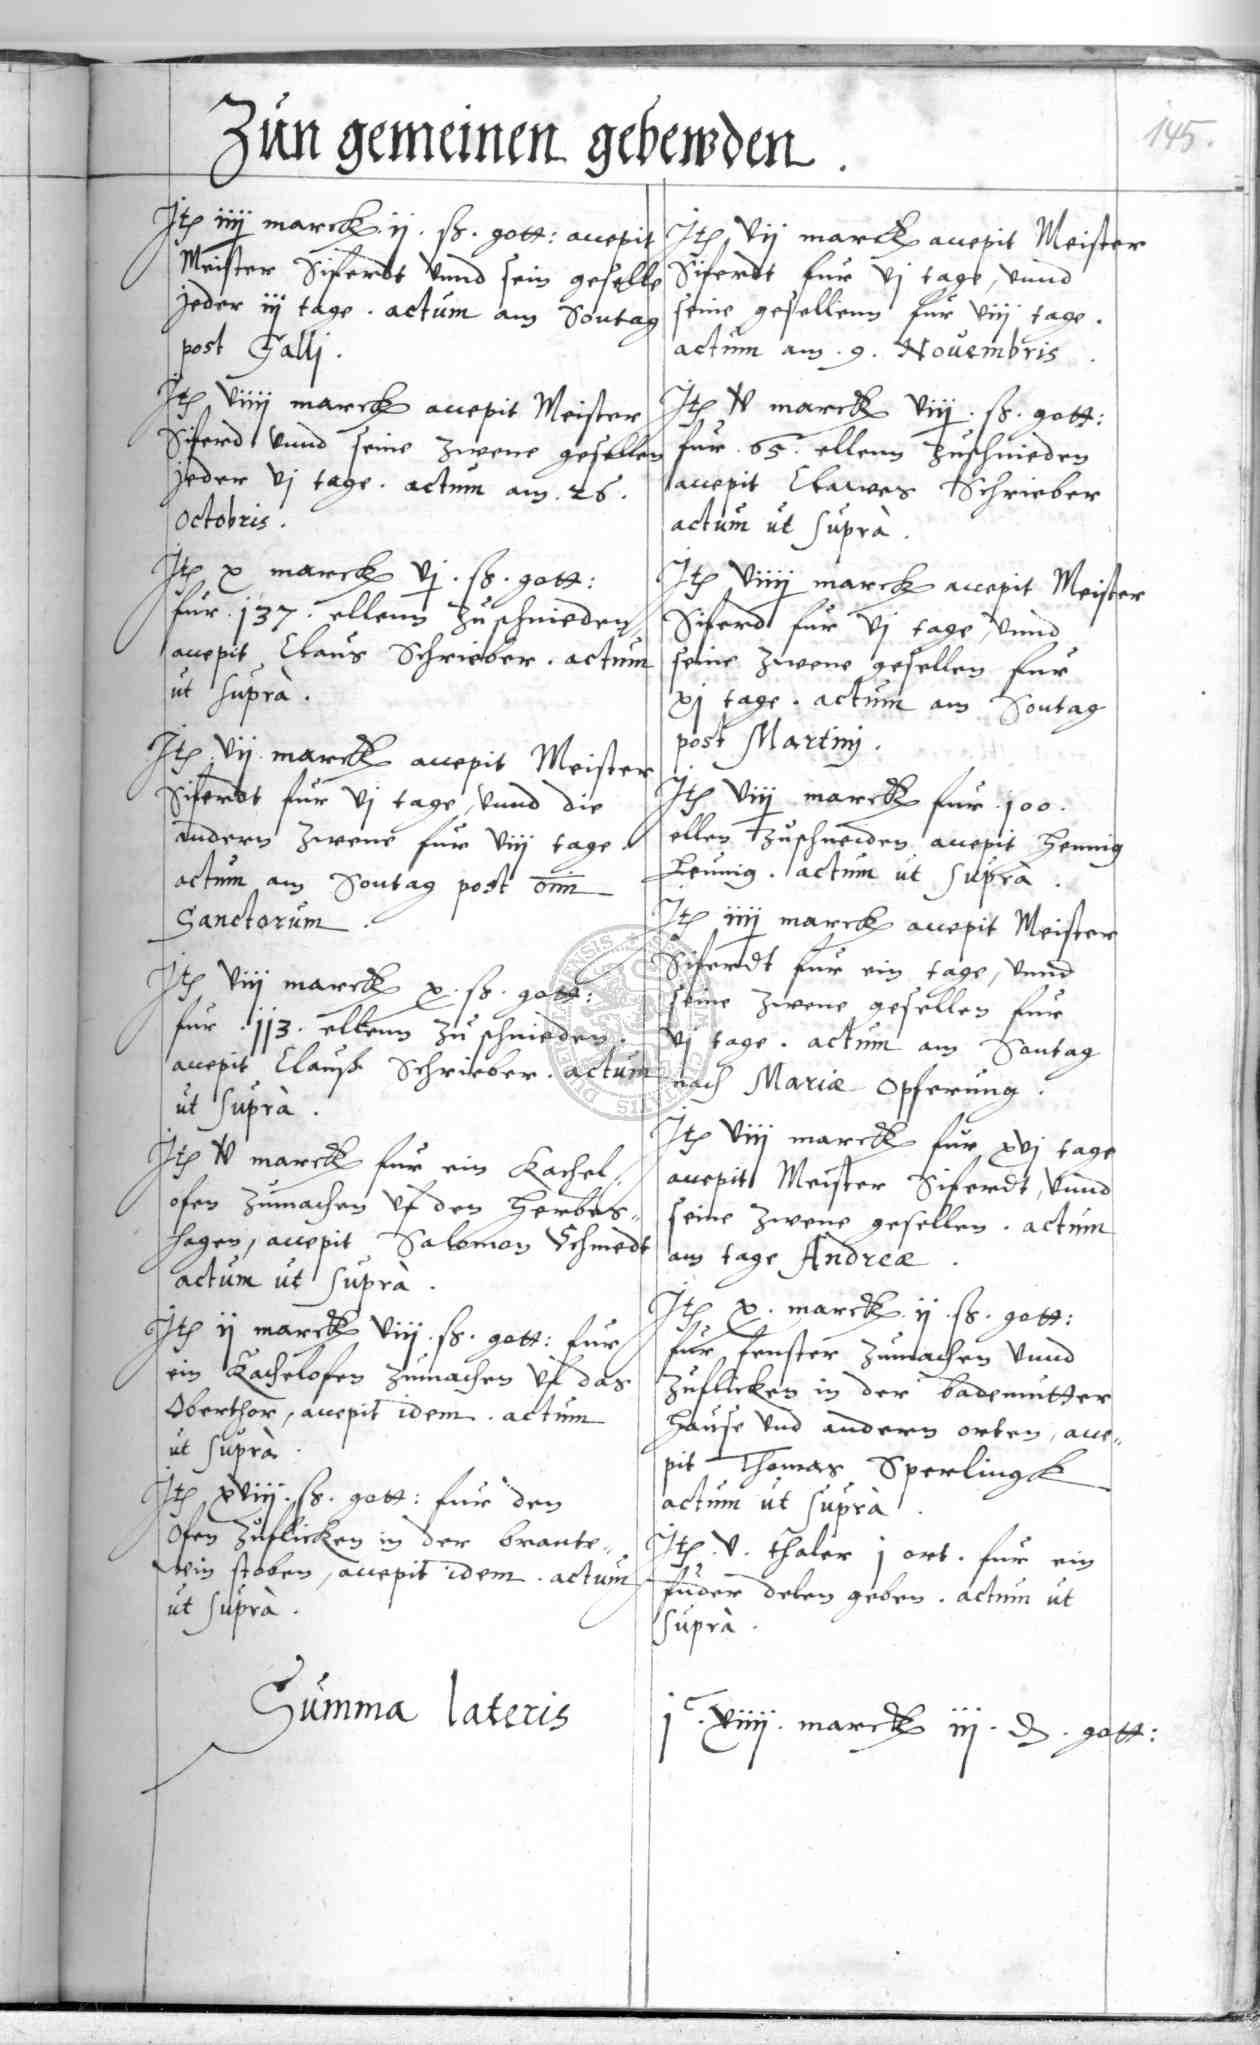 Zun gemeinen gebewden.
145.
Jtem iiij marck ij. ß. gott: accepit
Meister Siferdt vnnd sein geselle
jeder iij tage. actum am Sontag
post Galli.
Jtem viiij marck accepit Meister
Siferd vnnd seine zwene gesellen
jeder vj tage. actum am. 26.
Octobris.
Jtem x marck vj. ß. gott:
fur. j37. ellenn zuschnieden
accepit Claus Schrieber. actum
ut suprà.
Jtem vij marck accepit Meister
Siferdt fur vj tage, vnnd die
andern zwene fur viij tage.
actum am Sontag post om̄
Sanctorum.
Jtem viij marck x. ß. gott:
fur. jj3. ellenn zuschnieden.
accepit Clauß Schrieber. actum
ut suprà.
Jtem v marck fur ein Kachel„
ofen zumachen vf den Herbes„
hagen, accepit Salomon Schmedt
actum ut suprà.
Jtem ij marck viij. ß. gott: fur
ein Kachelofen zumachen vf das
Oberthor, accepit idem. actum
ut suprà.
Jtem xviij. ß. gott: fur den
Ofen zuflicken in der brante„
wein stoben, accepit idem. actum
ut suprà.
Jtem vij marck accepit Meister
Siferdt fur vj tage, vnnd
seine gesellenn fur viij tage.
actum am. 9. Novembris.
Jtem v marck viij. ß. gott:
fur. 65. ellenn zuschnieden
accepit Clawes Schrieber
actum ut suprà.
Jtem viiij marck accepit Meister
Siferd fur vj tage, vnnd
seine zwene gesellen fur
xj tage. actum am Sontag
post Martinj.
Jtem viij marck fur. j00.
ellen zuschneiden accepit Hennig
Leunig. actum ut suprà.
Jtem iiij marck accepit Meister
Siferdt fur ein tage, vnnd
seine zwene gesellen fur
vj tage. actum am Sontag
nach Mariæ Opferung.
Jtem viij marck fur xvj tage
accepit Meister Siferdt, vnnd
seine zwene gesellen. actum
am tage Andreæ.
Jtem x. marck ij. ß. gott:
fur fenster zumachen vnnd
zuflicken in der bademutter
hause vnd andern orten, acce„
pit Thomas Sperlingk
actum ut suprà.
Jtem. v. thaler j ort. fur ein
fuder delen geben. actum ut
suprà.
Summa lateris
jᶜ. xiiij. marck iij. ₰. gott: